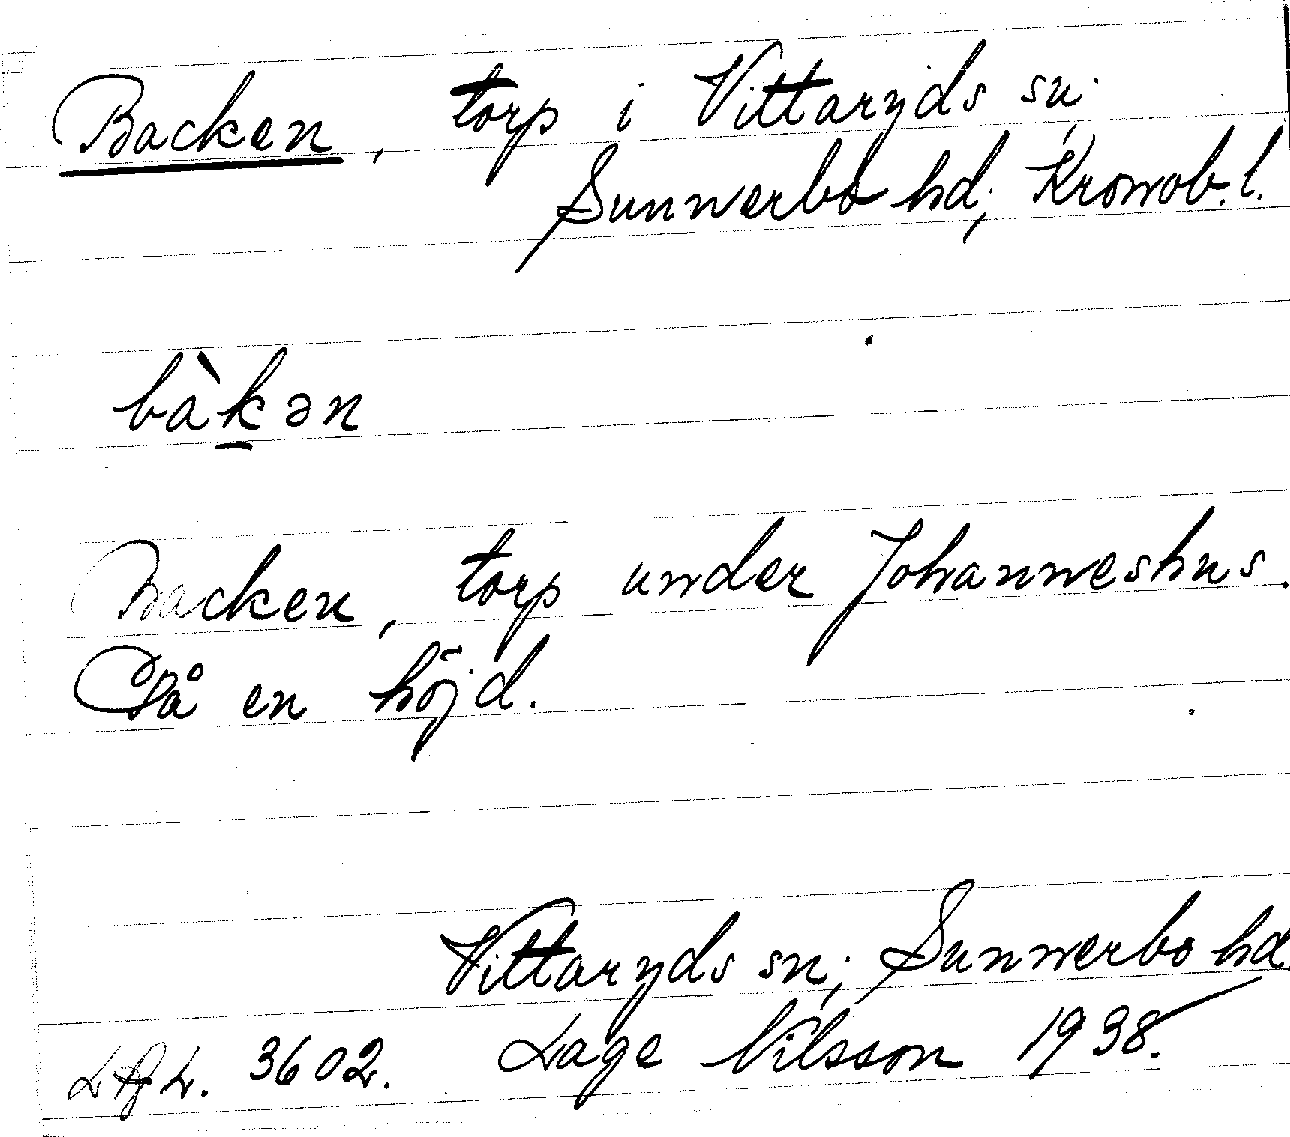 Backen, torp i Vittaryds sn;
Sunnerbo hd; Kronob. l.
bàk̲ən
Backen, torp under Johanneshus.
På en höjd.
Vittaryds sn; Sunnerbo hd
LAL. 3602. Lage Nilsson 1938.